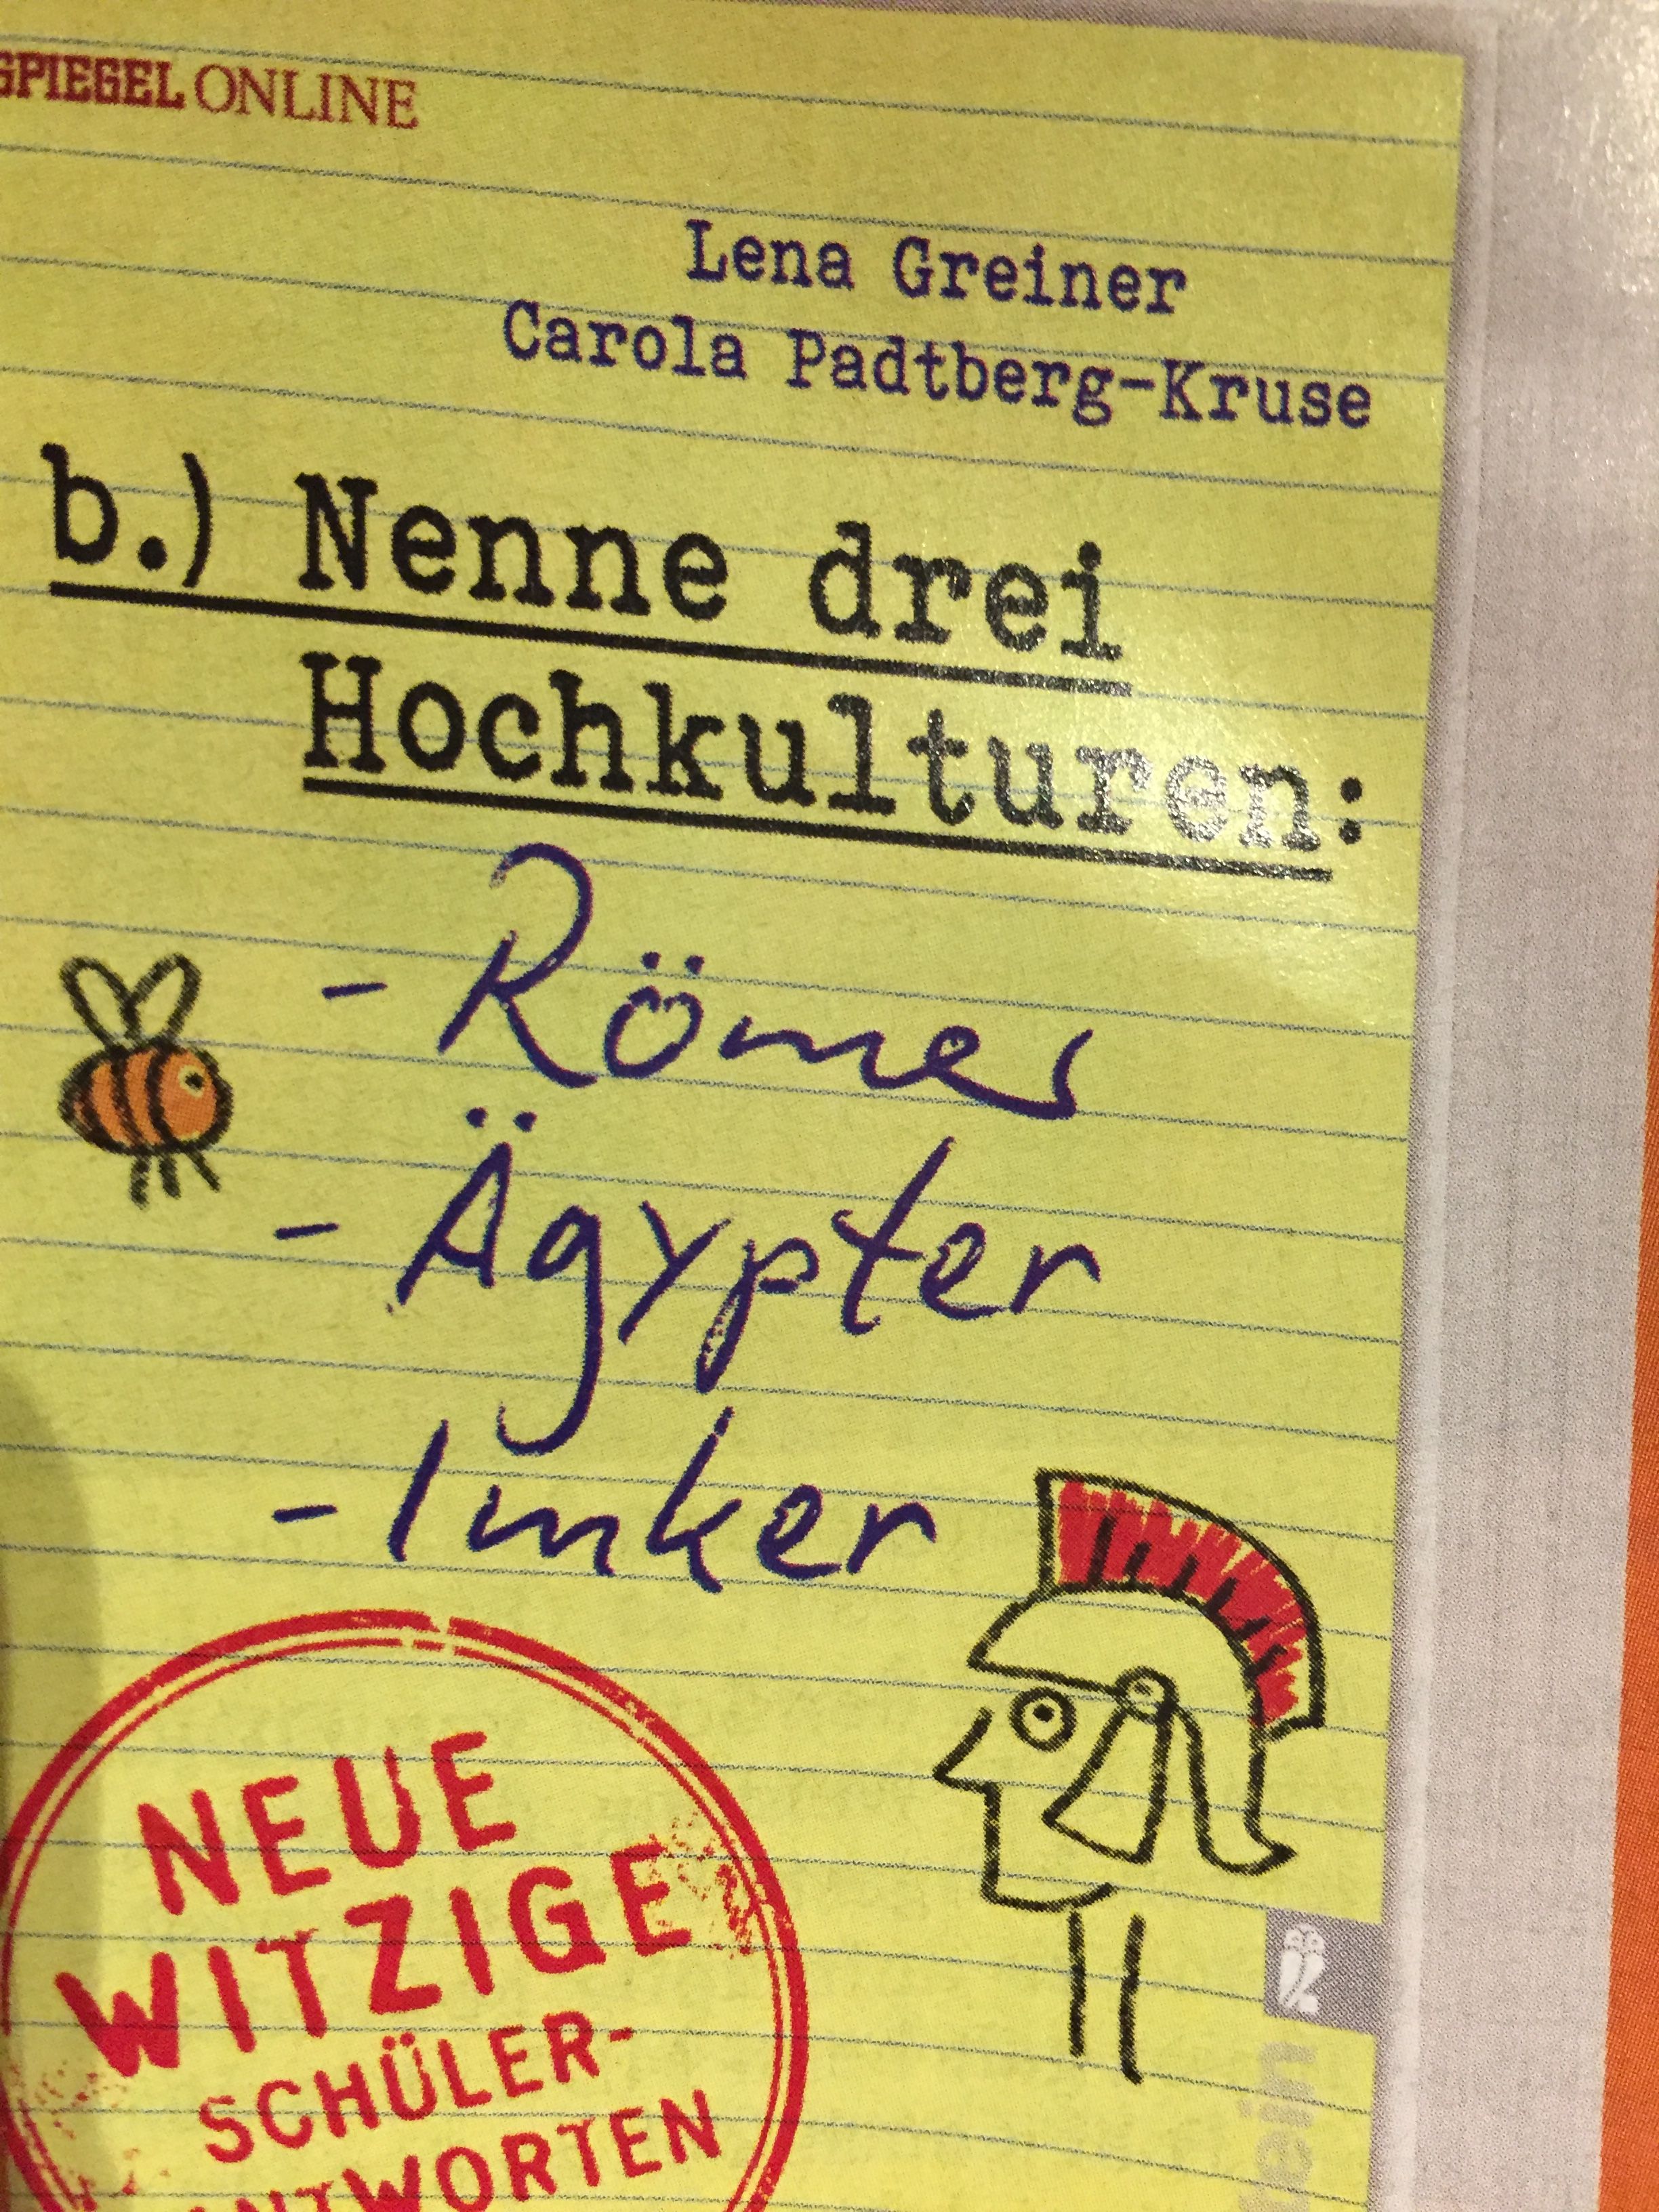 SPIEGEL ONLINE
Lena Greiner
Carola Padtberg-Kruse
b.) Nenne drei
Hochkulturen:
- Römer
- Ägypter
- Imker
NEUE
WITZIGE
SCHÜLER-
ANTWORTEN